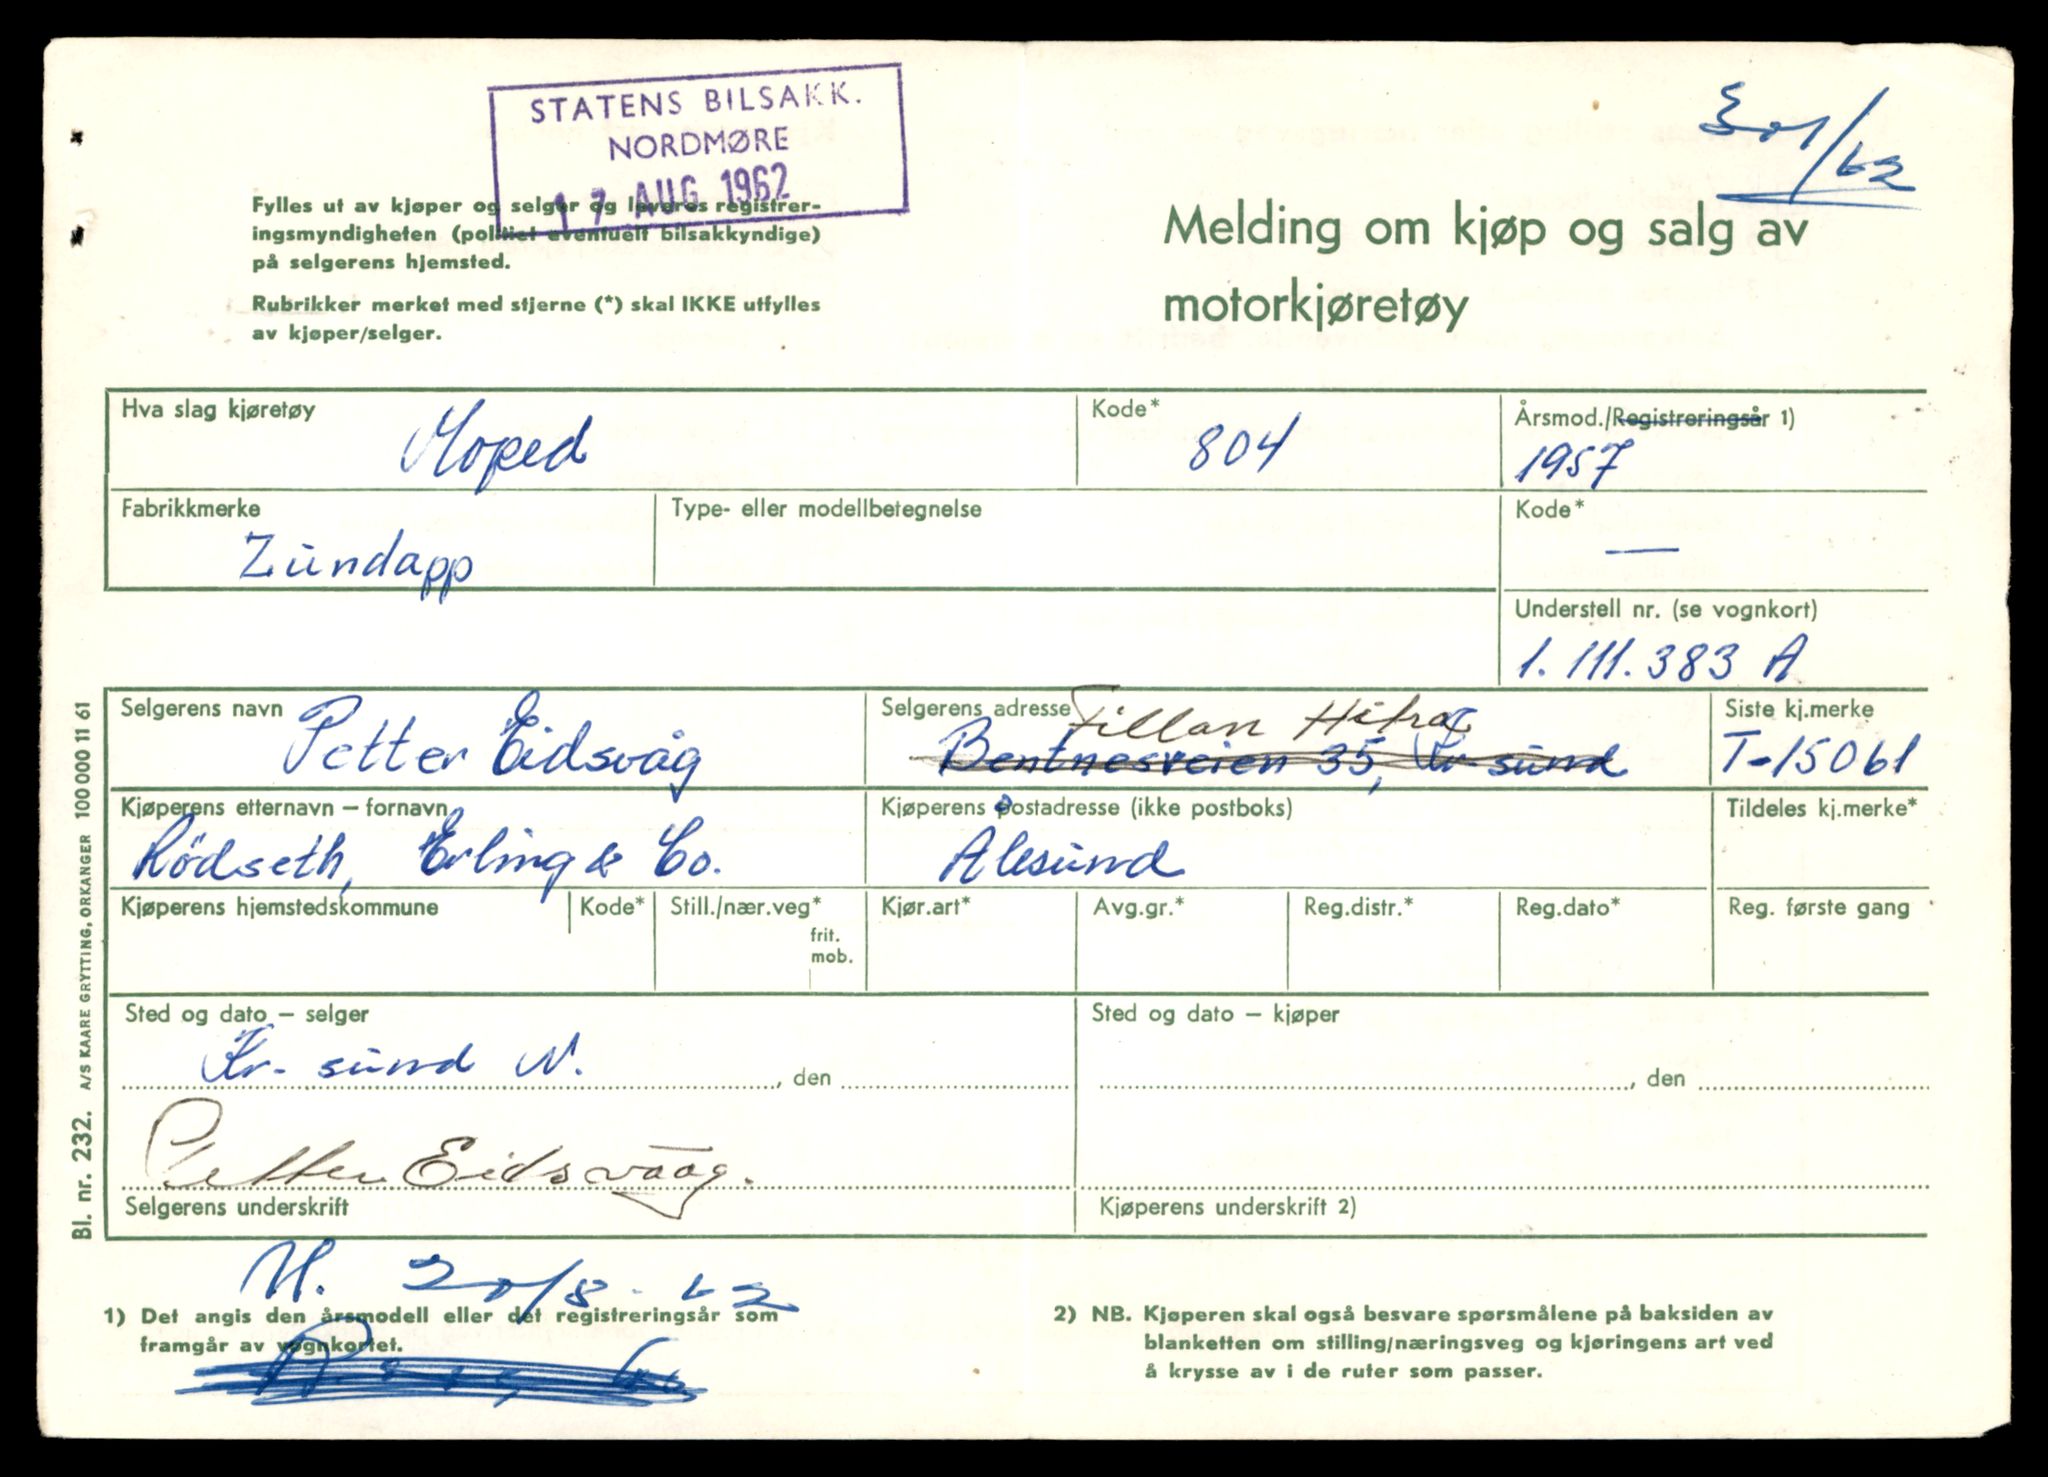 STATENS BILSAKK.
NORDMØRE
17 AUG 1962
Fylles ut av kjøper og selger og leveres registrer-
ingsmyndigheten (politiet eventuelt bilsakkyndige)
på selgerens hjemsted.
Rubrikker merket med stjerne (*) skal IKKE utfylles
av kjøper/selger.
Melding om kjøp og salg av
motorkjøretøy
Hva slag kjøretøy
Moped
Kode*
804
Årsmod./Registreringsår 1)
1957
Fabrikkmerke
Zündapp
Type- eller modellbetegnelse
Kode*
—
Understell nr. (se vognkort)
1.111.383 A
Selgerens navn
Petter Eidsvåg
Selgerens adresse
Fillan Hitra
Bentnesveien 35, Kr-sund
Siste kj.merke
T-15061
Kjøperens etternavn – fornavn
Rødseth, Erling & Co.
Kjøperens postadresse (ikke postboks)
Ålesund
Tildeles kj.merke*
Kjøperens hjemstedskommune
Kode*
Still./nær.veg*
frit.
mob.
Kjør.art*
Avg.gr.*
Reg.distr.*
Reg.dato*
Reg. første gang
Sted og dato – selger
Kr-sund N.
, den
Sted og dato – kjøper
, den
Petter Eidsvaag.
Selgerens underskrift
Kjøperens underskrift 2)
M. 20/8-62
1) Det angis den årsmodell eller det registreringsår som
framgår av vognkortet.
2) NB. Kjøperen skal også besvare spørsmålene på baksiden av
blanketten om stilling/næringsveg og kjøringens art ved
å krysse av i de ruter som passer.
Bl. nr. 232. A/S KAARE GRYTTING, ORKANGER 100000 11 61